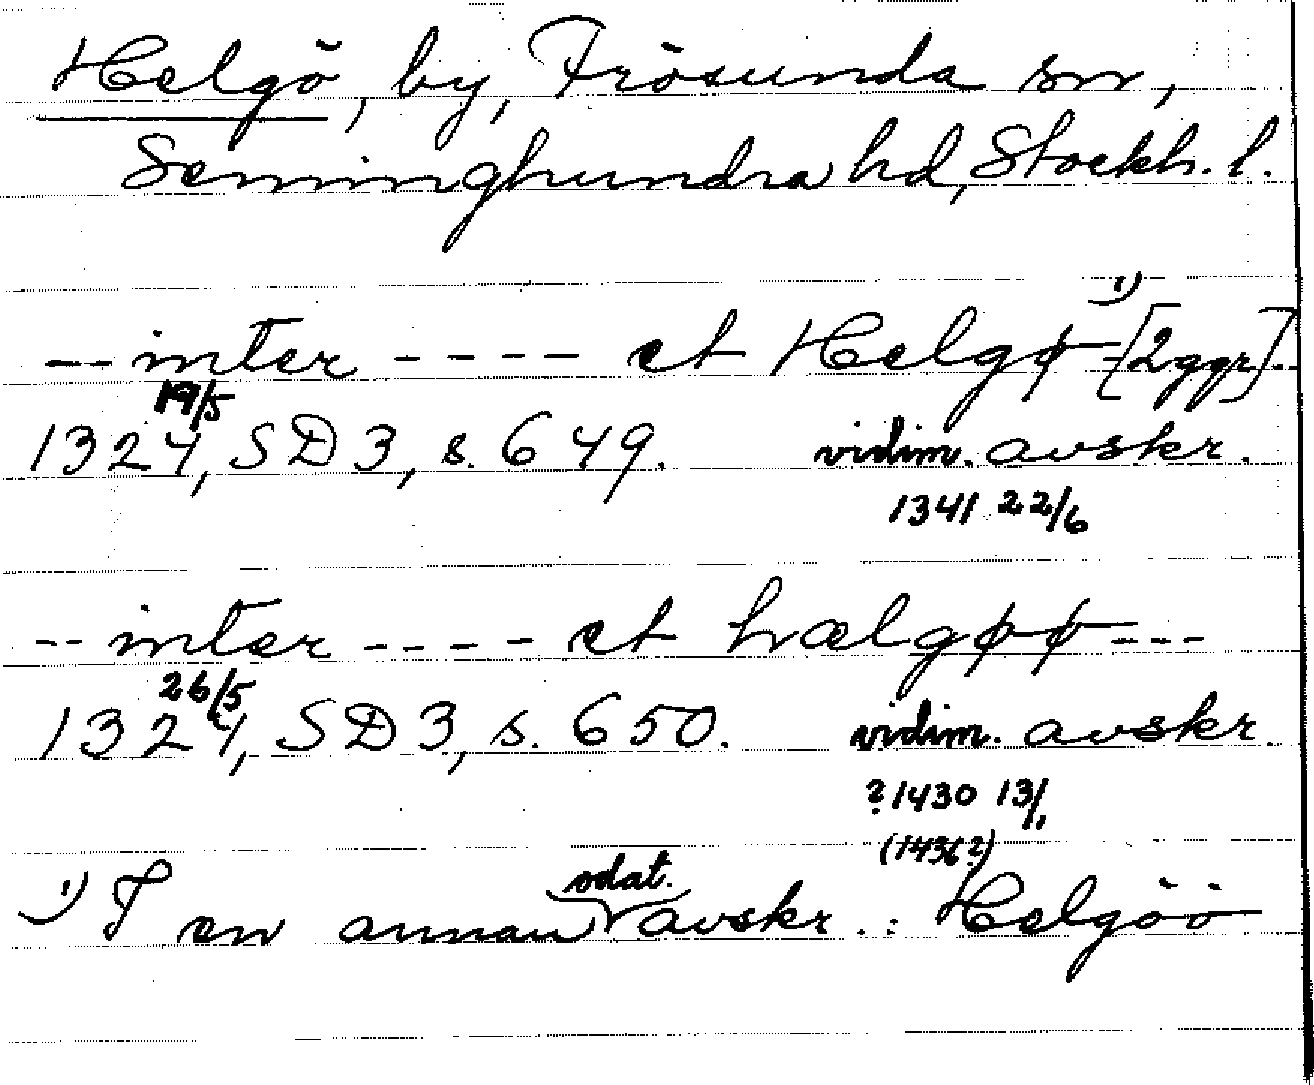 Helgö, by, Frösunda sn,
Seminghundra hd, Stockh. l.
-- inter ---- et Helgø ¹⁾ [2 ggr] --
19/5
1324, SD 3, s. 649. vidim. avskr.
1341 22/6
-- inter ---- et hælgøø ---
26/5
1324, SD 3, s. 650. vidim. avskr.
? 1430 13/11
(1436?)
¹⁾ I en annan odat. avskr.: Helgöö